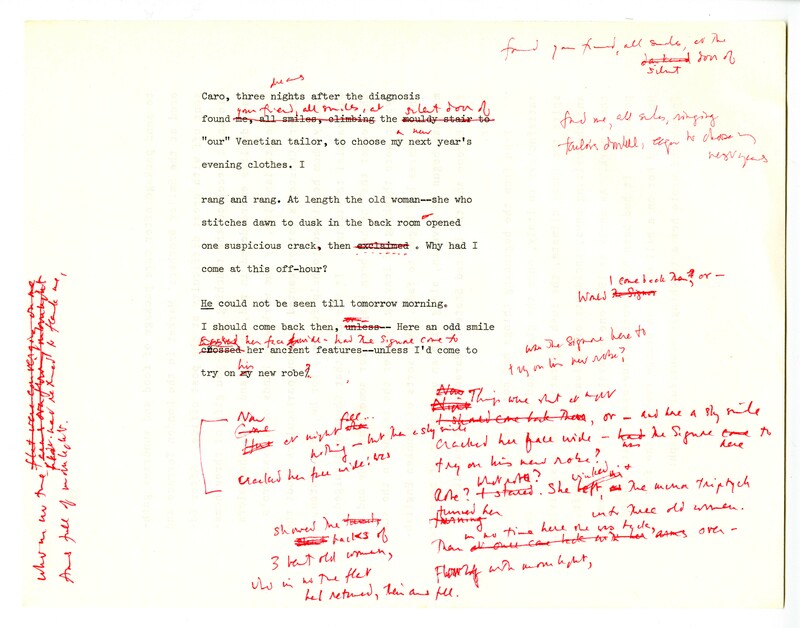 found your friend, all smiles, at the
door of
silent
years
Caro, three nights after the diagnosis
your friend, all smiles, at silent door of
found me, all smiles, climbing the mouldy stair to
a new
"our" Venetian tailor, to choose my next year's
evening clothes. I
find me, all smiles, ringing
tailor's doorbell, eager to choose my
next year's
rang and rang. At length the old woman--she who
stitches dawn to dusk in the back room opened
one suspicious crack, then exclaimed . Why had I
come at this off-hour?
I come back then, or —
Would the Signor
He could not be seen till tomorrow morning.
or—
I should come back then, unless-- Here an odd smile
her face wide - had the Signore come to
crossed her ancient features--unless I'd come to
his
try on my new robe?
was the Signore here to
try on his new robe?
Now
Come
at night
nothing — but then a sly smile
cracked her face wide: was
Now Things were shut at night
Night
I should come back then, or — and here a sly smile
cracked her face wide — had the Signore come to
was here
try on his new robe?
What robe?
Robe? I stared. She left, as the mirror triptych
winked
turned her into three old women.
turning
in no time here she was back,
Then arms over—
Flowing with moonlight,
showed the
backs of
3 bent old women,
who in no time flat
had returned, their arms full.
who in no time
flat had returned to face me,
Arms full of moonlight.